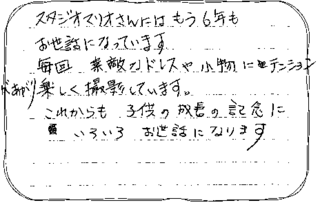 スタジオマリオさんには もう6年も
お世話になっています
毎回 素敵なドレスや小物にもテンション
があがり楽しく撮影しています。
これからも 子供の成長の記念に
いろいろ お世話になります